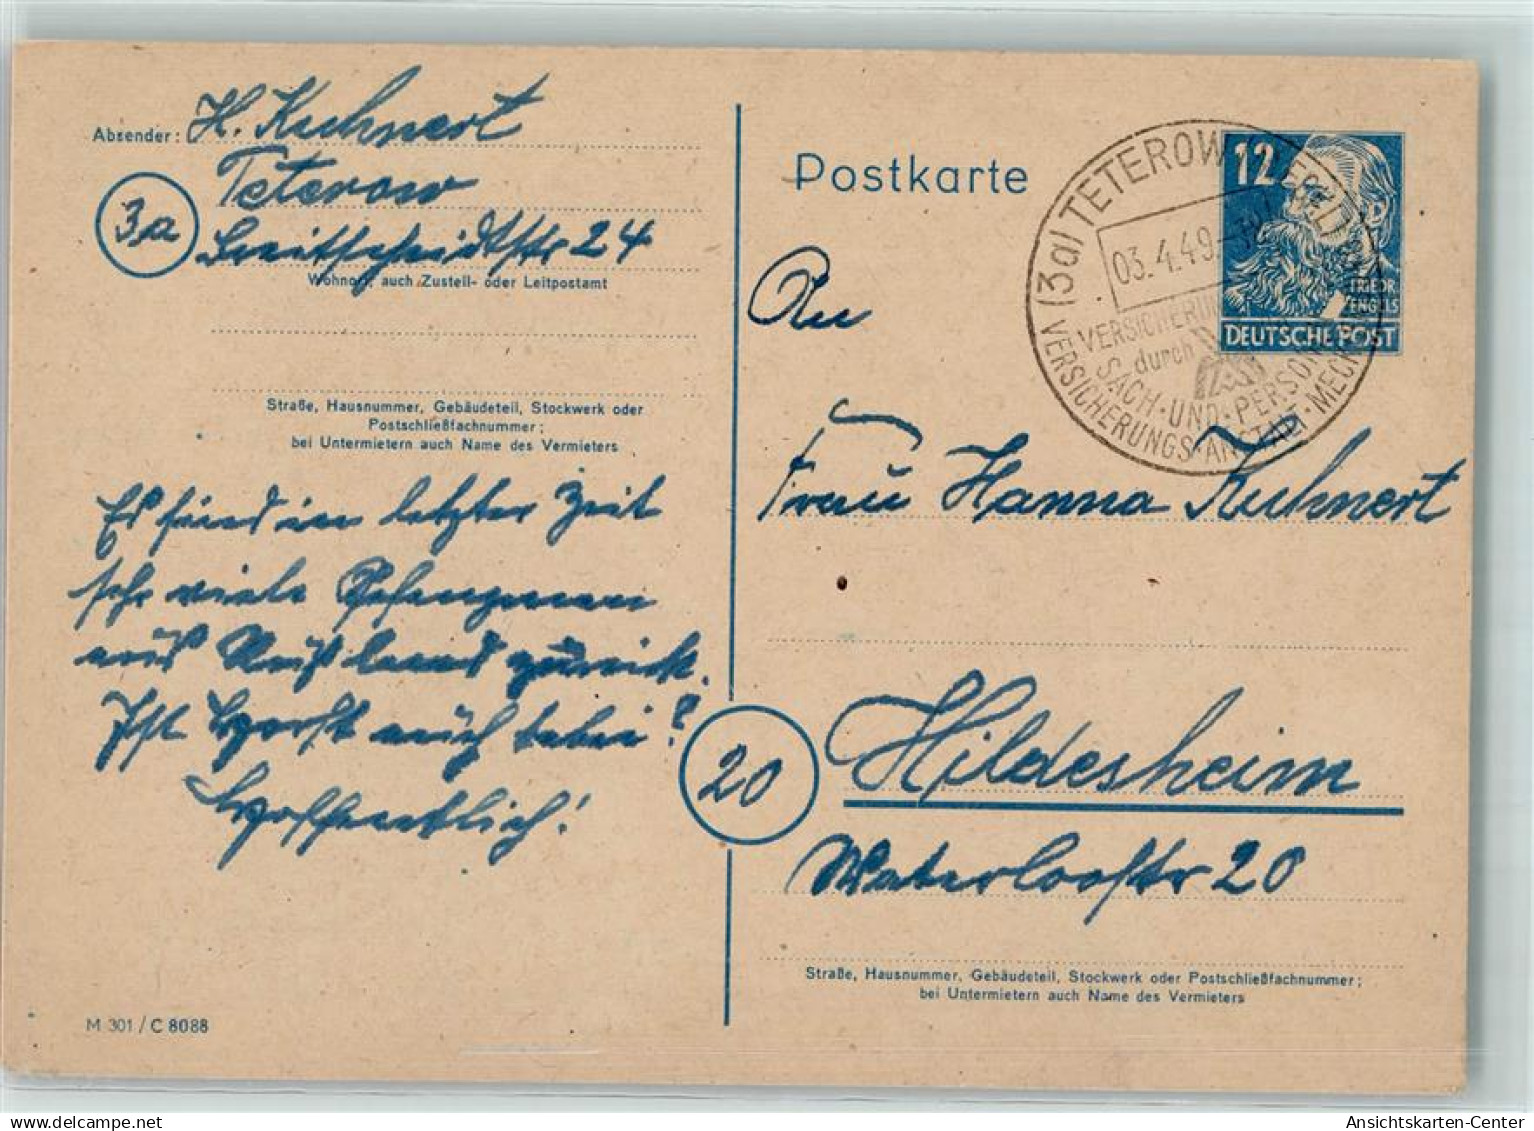 Absender: H. Kuhnert
Teterow
3a
Breitscheidstr 24
Wohnort, auch Zustell- oder Leitpostamt
Straße, Hausnummer, Gebäudeteil, Stockwerk oder
Postschließfachnummer;
bei Untermietern auch Name des Vermieters
Es sind in letzter Zeit
sehr viele Gefangenen
aus Rußland zurück.
Ist Horst auch dabei?
Hoffentlich!
M 301 / C 8088
Postkarte
12
FRIEDR
ENGELS
DEUTSCHE POST
(3a) TETEROW
03.4.49
VERSICHERUNG
durch
SACH-UND-PERSON
VERSICHERUNGS-ANSTALT-MECK
An
Frau Hanna Kuhnert
20
Hildesheim
Waterloostr 20
Straße, Hausnummer, Gebäudeteil, Stockwerk oder Postschließfachnummer;
bei Untermietern auch Name des Vermieters
Ansichtskarten-Center